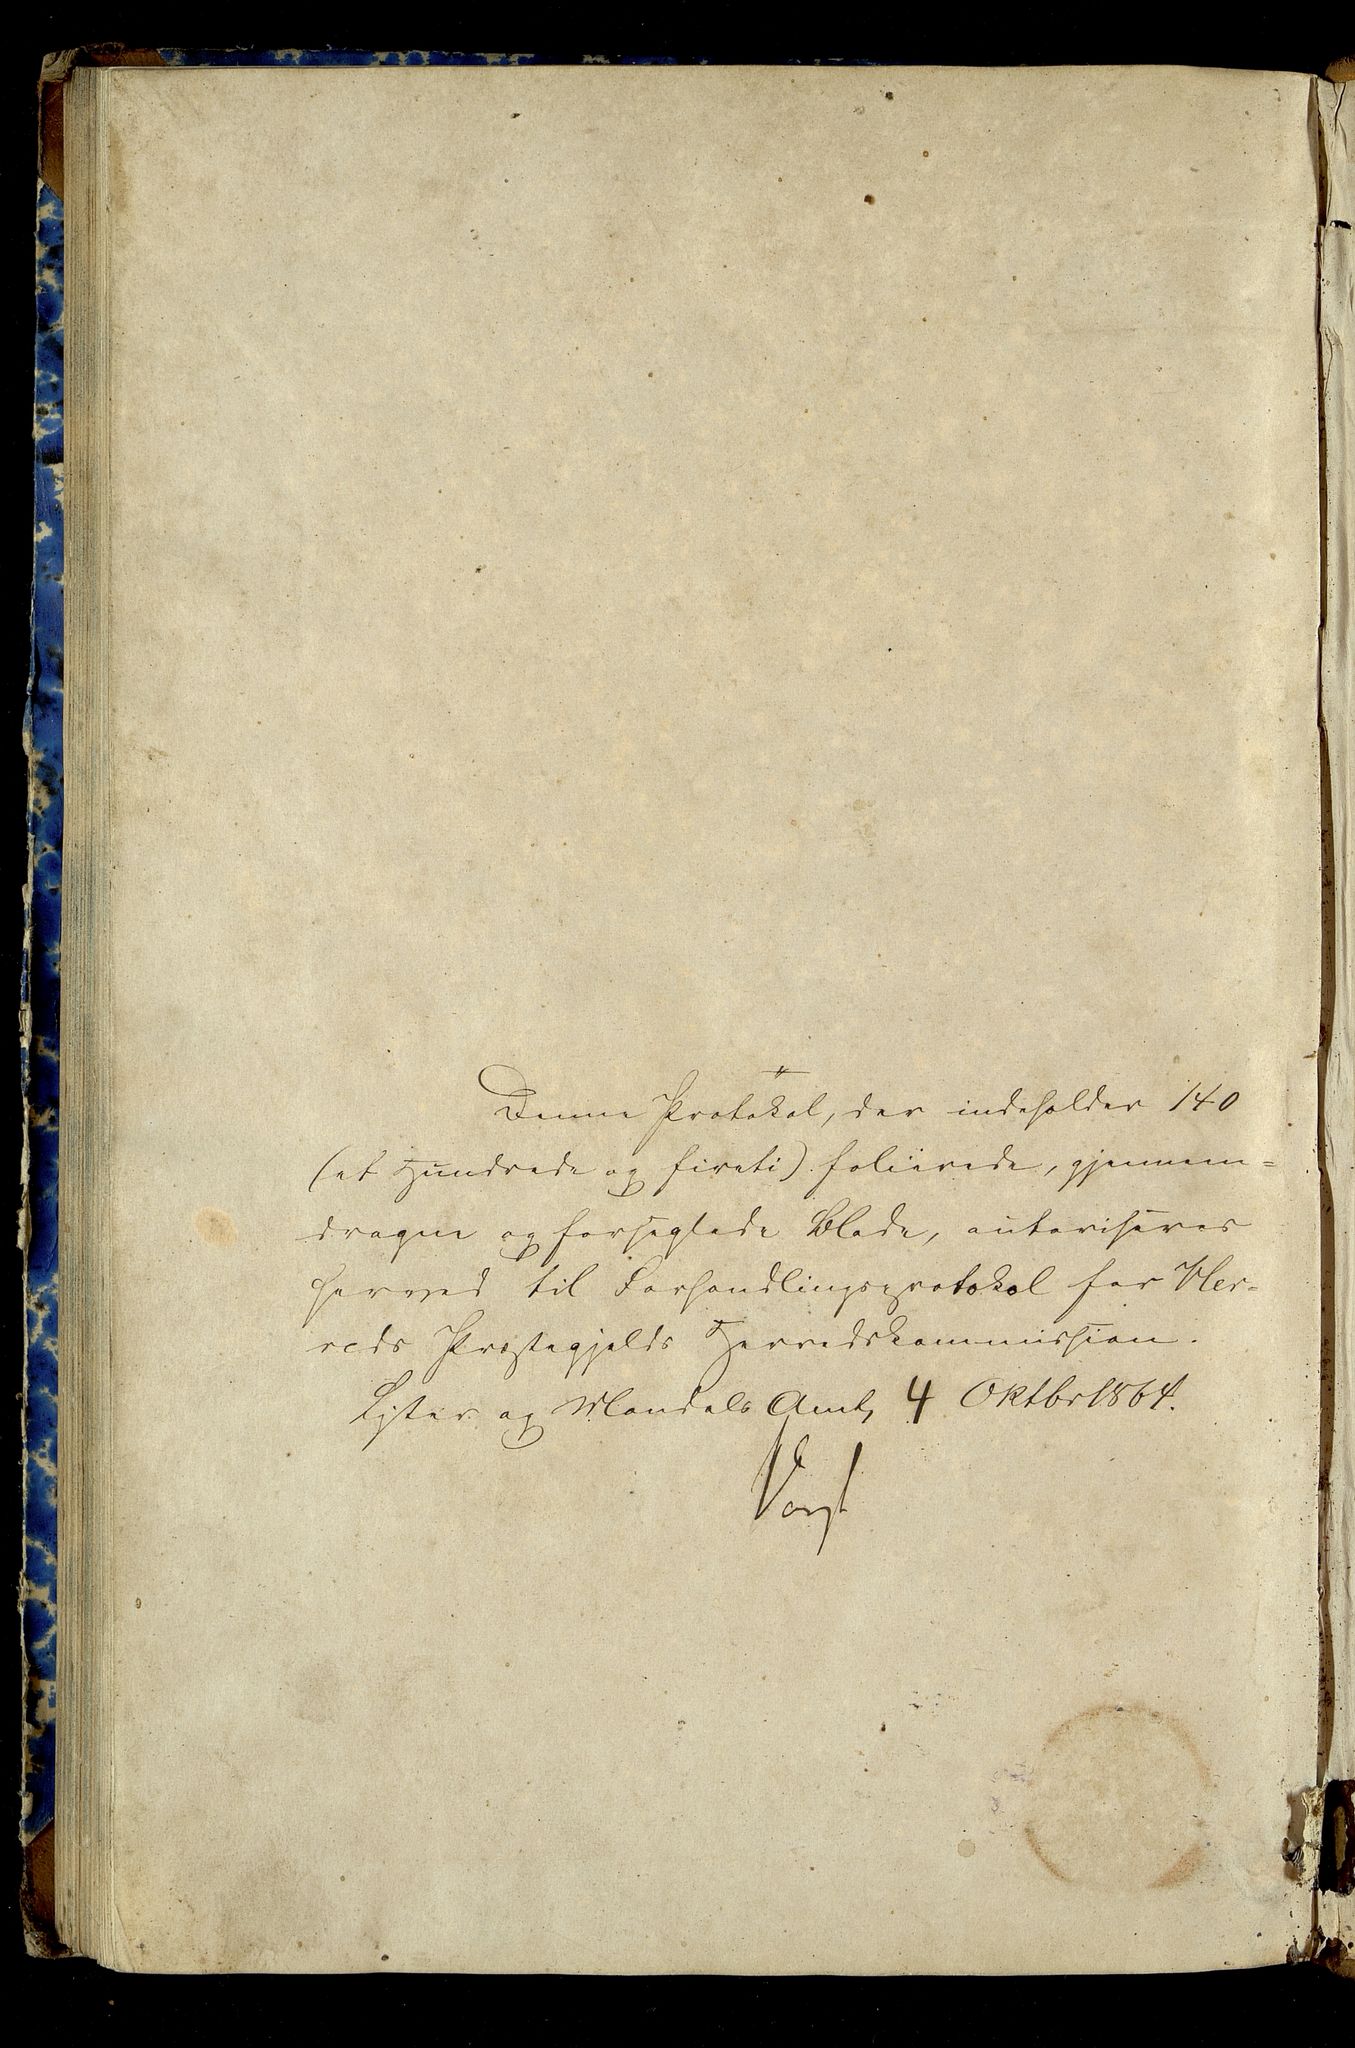 Denne Protokol, der indeholder 140
(et Hundrede og fireti) folierede, gjennem=
dragne og forseglede Blade, autoriseres
herved til Forhandlingsprotokol for Her-
reds Præstegjelds Herredskommission.
Lister og Mandals Amt, 4 Oktbr 1864.
Vogt